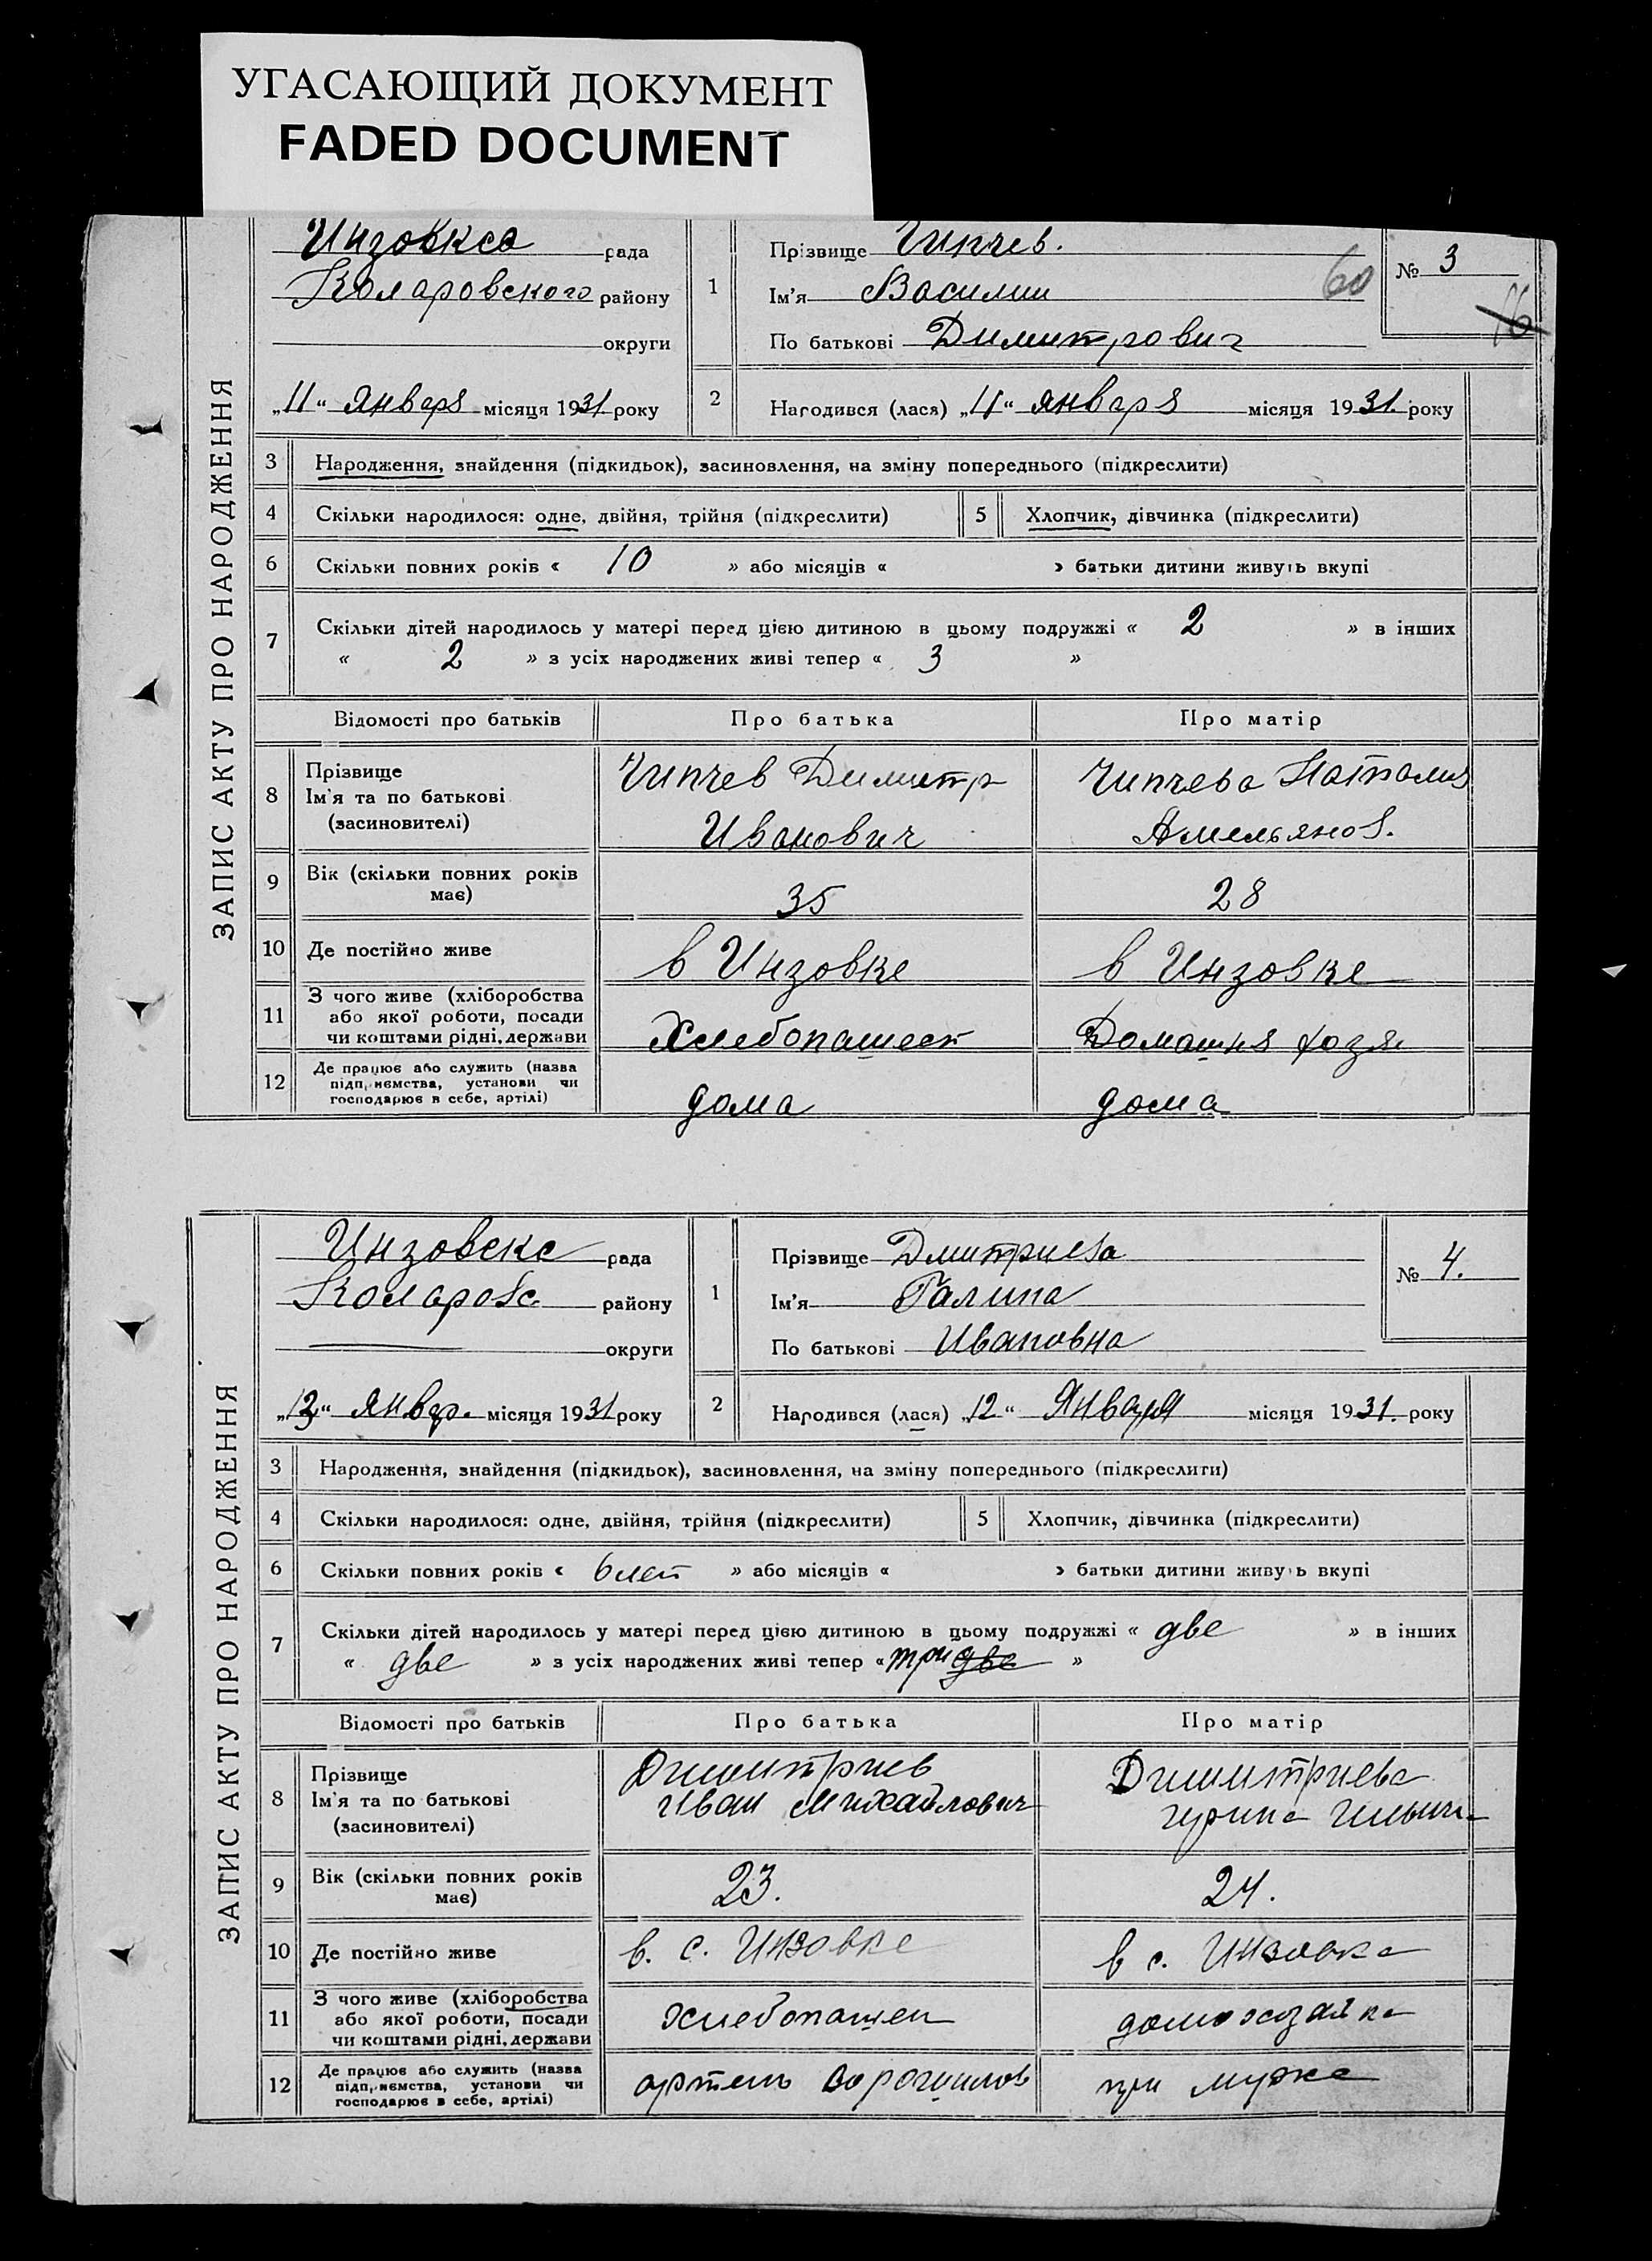 УГАСАЮЩИЙ ДОКУМЕНТ
FADED DOCUMENT
ЗАПИС АКТУ ПРО НАРОДЖЕННЯ
Инзовкса рада
Коларовского району
округи
„11“ Января місяця 1931 року
1
Прізвище Чипчев.
Ім'я Василии
По батькові Димитрович
60
№ 3
16
2
Народився (лася) „11“ января місяця 1931. року
3 Народження, знайдення (підкидьок), засиновлення, на зміну попереднього (підкреслити)
4 Скільки народилося: одне, двійня, трійня (підкреслити) 5 Хлопчик, дівчинка (підкреслити)
6 Скільки повних років « 10 » або місяців « » батьки дитини живуть вкупі
7 Скільки дітей народилось у матері перед цією дитиною в цьому подружжі « 2 » в інших
« 2 » з усіх народжених живі тепер « 3 »
Відомості про батьків Про батька Про матір
8 Прізвище
Ім'я та по батькові
(засиновителі)
Чипчев Димитр
Иванович
Чипчева Наталия
Амельянов.
9 Вік (скільки повних років
має)
35 28
10 Де постійно живе в Инзовке в Инзовке
11 З чого живе (хліборобства
або якої роботи, посади
чи коштами рідні, держави
Хлебопашест Домашня хозя
12 Де працює або служить (назва
підприємства, установи чи
господарює в себе, артілі)
дома дома
ЗАПИС АКТУ ПРО НАРОДЖЕННЯ
Инзовске рада
Коларовс району
округи
„13“ Январ. місяця 1931 року
1
Прізвище Дмитриева
Ім'я Галина
По батькові Ивановна
№ 4.
2
Народився (лася) „12“ Января місяця 1931. року
3 Народження, знайдення (підкидьок), засиновлення, на зміну попереднього (підкреслити)
4 Скільки народилося: одне, двійня, трійня (підкреслити) 5 Хлопчик, дівчинка (підкреслити)
6 Скільки повних років « 6 лет » або місяців « » батьки дитини живуть вкупі
7 Скільки дітей народилось у матері перед цією дитиною в цьому подружжі « две » в інших
« две » з усіх народжених живі тепер « три две »
Відомості про батьків Про батька Про матір
8 Прізвище
Ім'я та по батькові
(засиновителі)
Димитриев
Иван Михайлович
Димитриева
Ильин
9 Вік (скільки повних років
має)
23. 24.
10 Де постійно живе в. с. Инзовке в с. Инзовка
11 З чого живе (хліборобства
або якої роботи, посади
чи коштами рідні, держави
хлебопашец домохозяйка
12 Де працює або служить (назва
підприємства, установи чи
господарює в себе, артілі)
артель Ворошилов при мужа